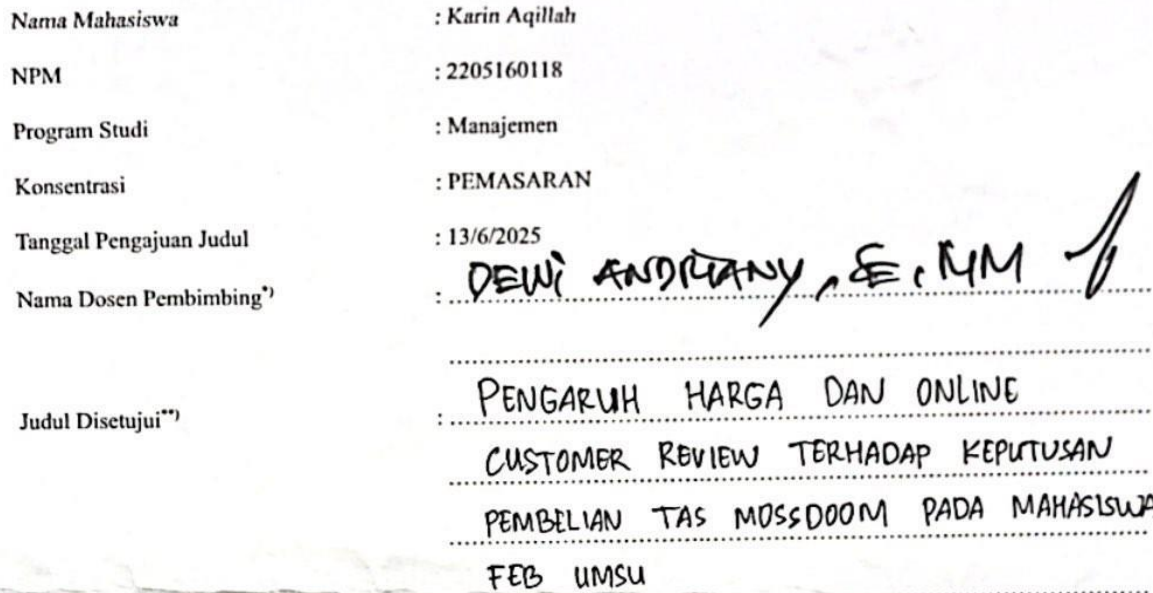 Nama Mahasiswa : Karin Aqillah
NPM : 2205160118
Program Studi : Manajemen
Konsentrasi : PEMASARAN
Tanggal Pengajuan Judul : 13/6/2025
Nama Dosen Pembimbing*) : DEWI ANDRIANY, SE, MM
Judul Disetujui**) : PENGARUH HARGA DAN ONLINE
CUSTOMER REVIEW TERHADAP KEPUTUSAN
PEMBELIAN TAS MOSSDOOM PADA MAHASISWA
FEB UMSU